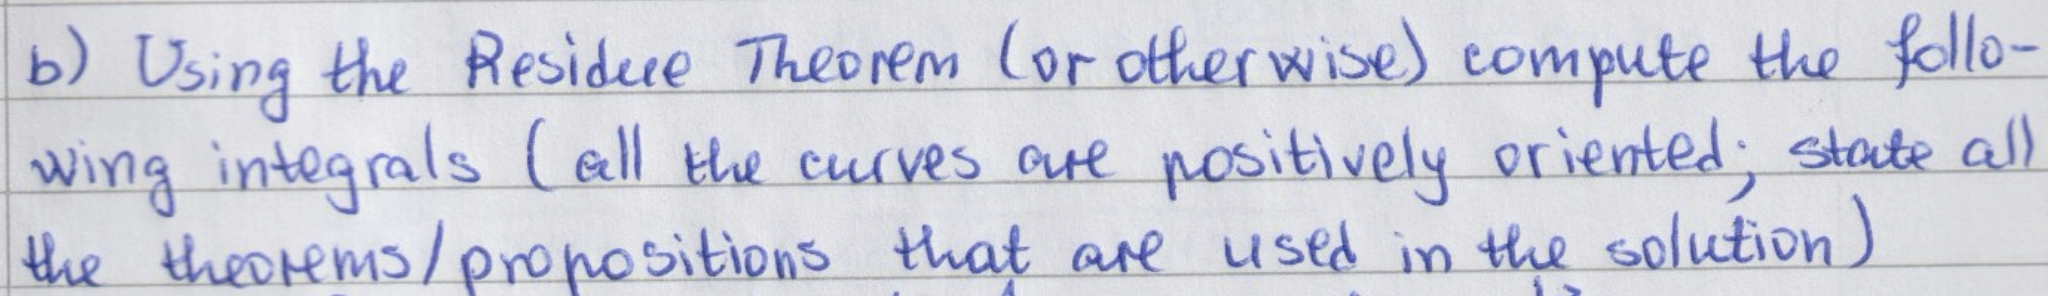 b) Using the Residue Theorem (or otherwise) compute the follo-
wing integrals (all the curves are positively oriented; state all
the theorems/propositions that are used in the solution)